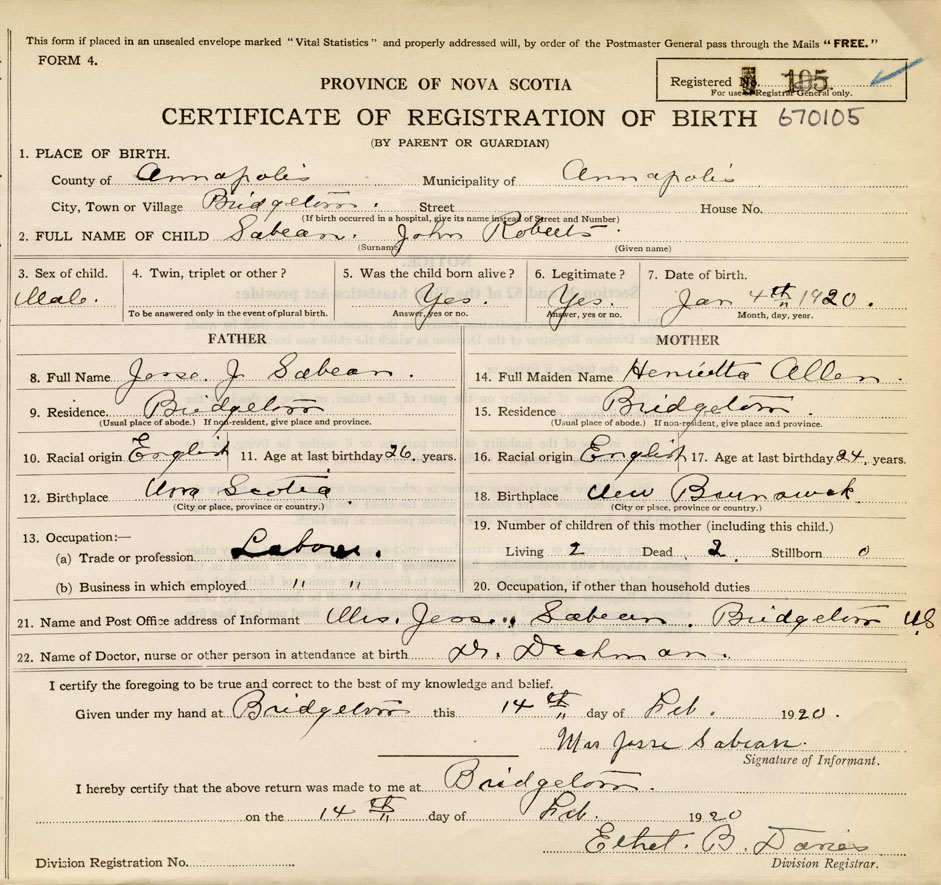 This form if placed in an unsealed envelope marked "Vital Statistics" and properly addressed will, by order of the Postmaster General pass through the Mails "FREE."
FORM 4.
Registered No. 105
For use of Registrar General only.
PROVINCE OF NOVA SCOTIA
CERTIFICATE OF REGISTRATION OF BIRTH 670105
(BY PARENT OR GUARDIAN)
1. PLACE OF BIRTH.
County of Annapolis Municipality of Annapolis
City, Town or Village Bridgetown. Street House No.
(If birth occurred in a hospital, give its name instead of Street and Number)
2. FULL NAME OF CHILD Sabean. John Roberts
(Surname) (Given name)
3. Sex of child. 4. Twin, triplet or other? 5. Was the child born alive? 6. Legitimate? 7. Date of birth.
Male. Yes. Yes. Jan 4th 1920.
To be answered only in the event of plural birth. Answer, yes or no. Answer, yes or no. Month, day, year.
FATHER MOTHER
8. Full Name Jesse. J. Sabean. 14. Full Maiden Name Henrietta Allen
9. Residence. Bridgetown 15. Residence Bridgetown.
(Usual place of abode.) If non-resident, give place and province. (Usual place of abode.) If non-resident, give place and province.
10. Racial origin English 11. Age at last birthday 26. years. 16. Racial origin English 17. Age at last birthday 24. years.
12. Birthplace Nova Scotia 18. Birthplace New Brunswick
(City or place, province or country.) (City or place, province or country.)
13. Occupation:— 19. Number of children of this mother (including this child.)
(a) Trade or profession Labour. Living 2 Dead 2 Stillborn 0
(b) Business in which employed " " 20. Occupation, if other than household duties
21. Name and Post Office address of Informant Mrs. Jesse, Sabean. Bridgetown NS
22. Name of Doctor, nurse or other person in attendance at birth Dr. Dechman.
I certify the foregoing to be true and correct to the best of my knowledge and belief.
Given under my hand at Bridgetown this 14th day of Feb. 1920.
Mrs Jesse Sabean.
Signature of Informant.
I hereby certify that the above return was made to me at Bridgetown.
on the 14th day of Feb. 1920
Ethel. B. Davies
Division Registration No. Division Registrar.